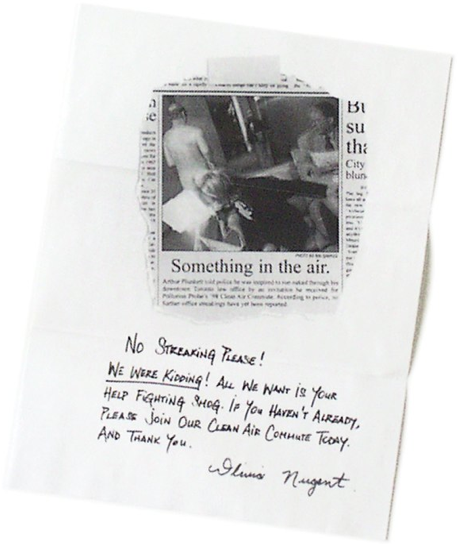 Bu
su
tha
City
blun
se
Something in the air.
Arthur Plunkett told police he was inspired to run naked through his
downtown Toronto law office by an invitation he received for
Pollution Probe's '98 Clean Air Commute. According to police, no
further office streakings have yet been reported.
No Streaking Please!
We Were Kidding! All We Want is Your
Help Fighting Smog. If You Haven't Already,
Please Join Our Clean Air Commute Today.
And Thank You.
Nugent